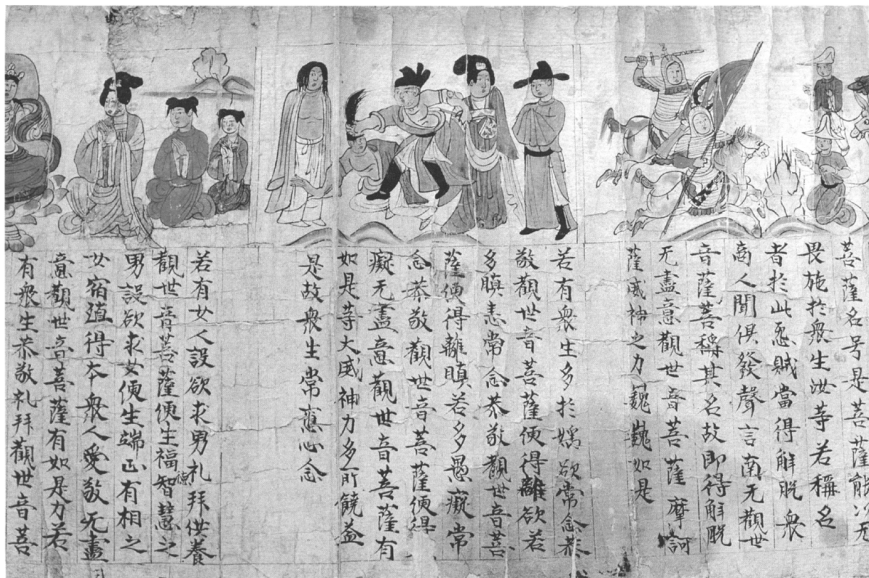 菩薩名号是菩薩能以无
畏施於衆生汝等若稱名
者於此怨賊當得解脫衆
商人聞俱發聲言南无觀世
音薩菩稱其名故即得解脫
无盡意觀世音菩薩摩訶
薩威神之力巍巍如是
若有衆生多於婬欲常念恭
敬觀世音菩薩便得離欲若
多瞋恚常念恭敬觀世音菩
薩便得離瞋若多愚癡常
念恭敬觀世音菩薩便得
癡无盡意觀世音菩薩有
如是等大威神力多所饒益
是故衆生常應心念
若有女人設欲求男礼拜供養
觀世音菩薩便生福德智慧之
男設欲求女便生端正有相之
女宿殖得本衆人愛敬无盡
意觀世音菩薩有如是力若
有衆生恭敬礼拜觀世音菩